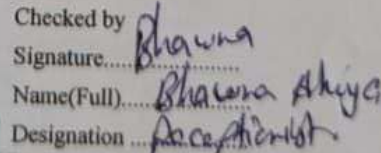 Checked by
Signature....Bhawna
Name(Full)....Bhawna Ahuja
Designation ...Receptionist